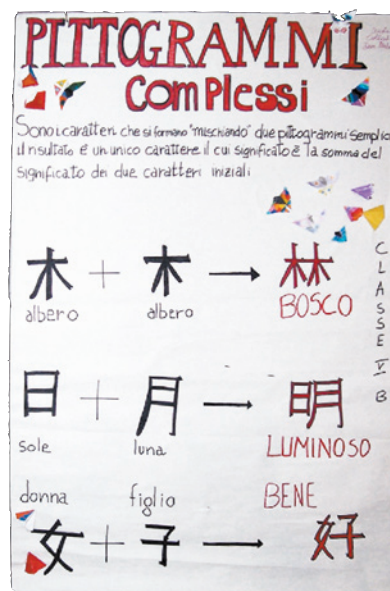 PITTOGRAMMI
COMPLESSI
Sono i caratteri che si formano "mischiando" due pittogrammi semplici
il risultato è un unico carattere il cui significato è la somma del
significato dei due caratteri iniziali
木 + 木 → 林
albero albero BOSCO
日 + 月 → 明
sole luna LUMINOSO
donna figlio BENE
女 + 子 → 好
CLASSE V B